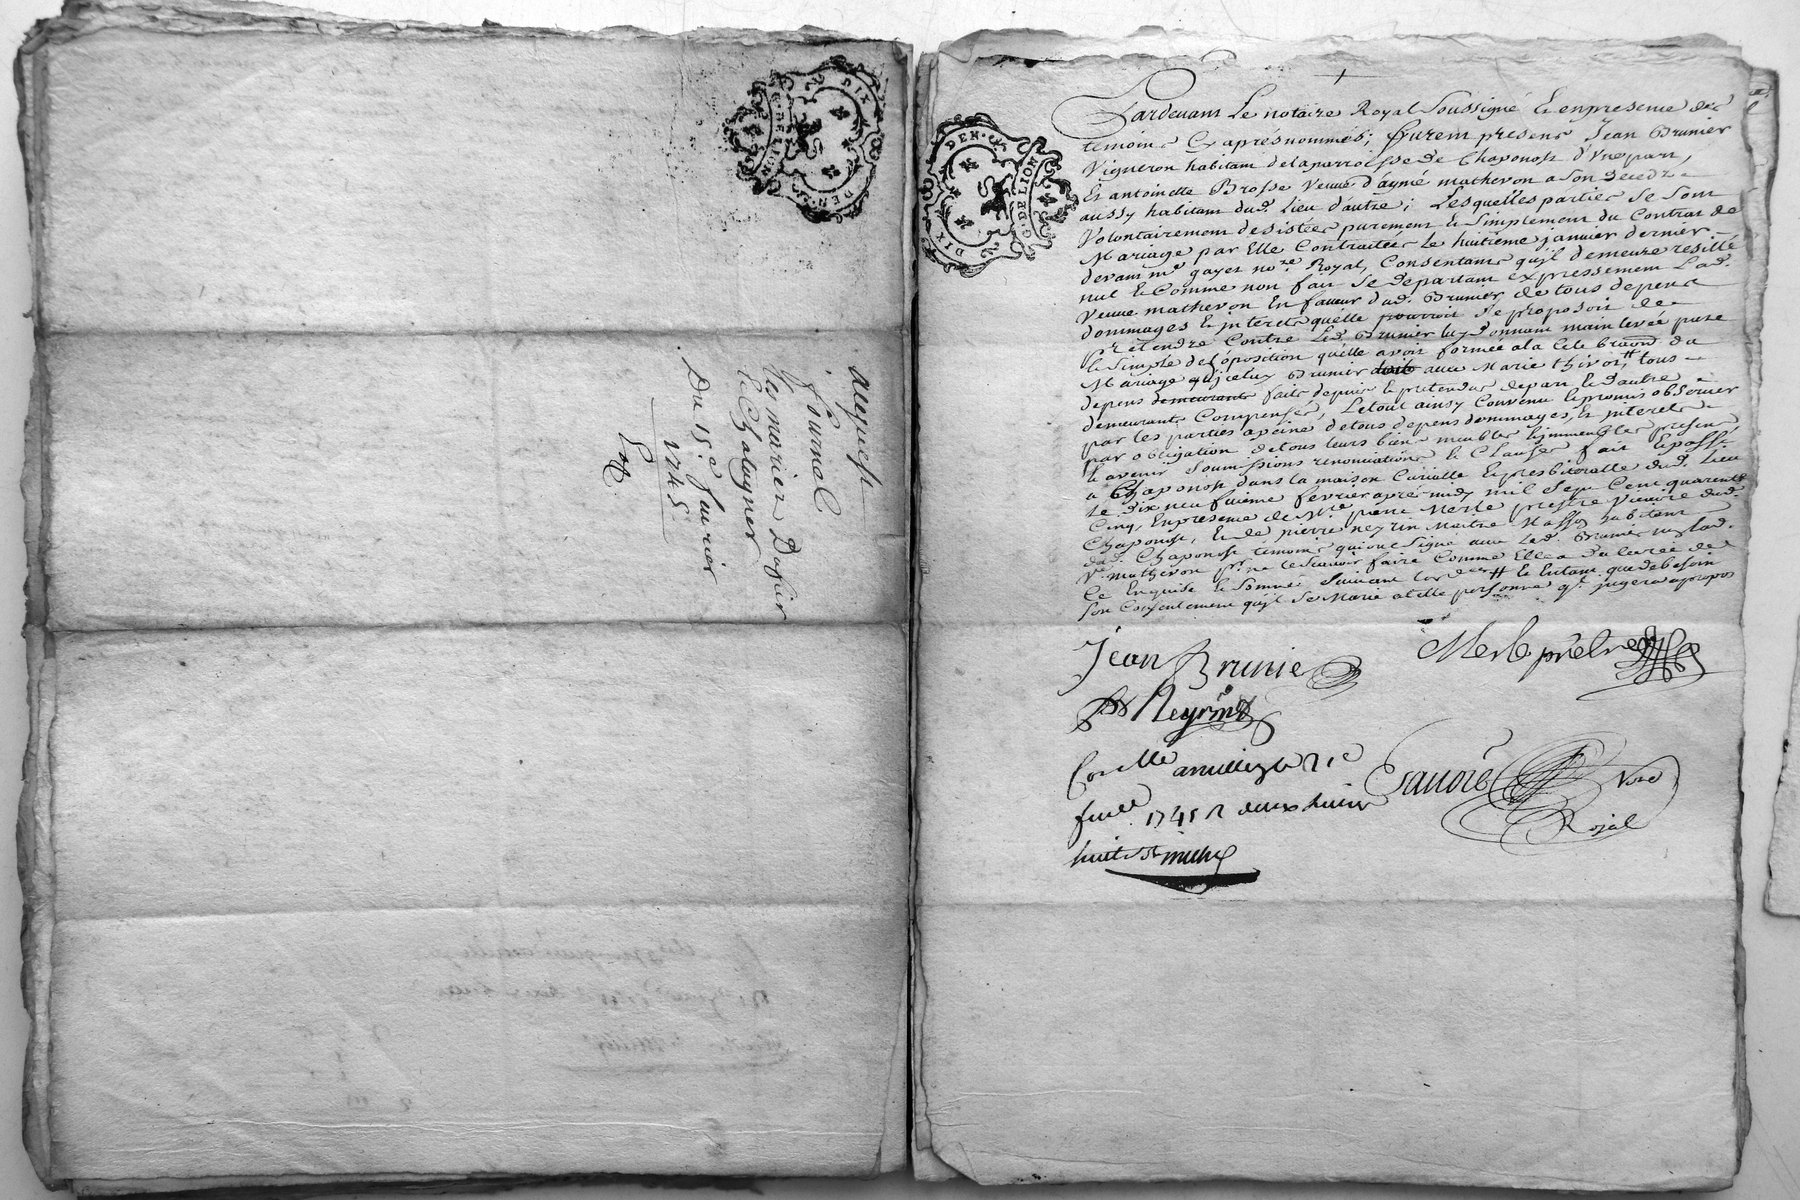 DIX DEN.
G. DE LION
acquest
fournel
les mariez
et Chalagner
Du 15e
1745
DIX DEN.
G. DE LION
Pardevant Le notaire Royal Soussigné Et enpresence des
temoins Cy aprés nommés; furent presens Jean Brunier
Vigneron habitant delaparroisse de Chaponost d'Vne part,
Et antoinette Brosse Veuve d'aymé mathevon a son deced
aussy habitant dud. lieu d'autre; Lesquelles parties se sont
Volontairement desistées purement & simplement du Contrat de
Mariage par Elle Contractées Le huitieme janvier dernier
devant me gayet nore Royal, Consentants qu'jl demeure resillé
nul & Comme non fait Se departant expressement Lad.
veuve mathevon En faveur dud. Brunier, de tous depens
dommages & jnterets qu'elle pourroit Se proposoit de
Pretendre Contre Led. Brunier luy donnant main levée pure
& Simple de l'óposition qu'elle avoit formée a la Celebraon du
Mariage qu'jceluy Brunier avec Marie thivot, # tous
depens demeurants faits depuis & pretendus depart & d'autre
demeurants Compensés, Letout ainsy Convenu & promis observer
par les parties apeine detous depens dommages, & jnterets
par obligation detous leurs biens meubles & jmmeubles presens
& avenir Soumissions renonciations & Clauses fait & passé
a Chaponost dans la maison Curialle & presbiteralle dud. Lieu
Le dix neufvieme février aprés midy mil Sept Cent quarente
Cinq, En presence de Mre pierre Merle prestre Vicaire dud.
Chaponost, Et de pierre neyrin Maitre Masson habitant
dud. Chaponost temoins qui ont Signé avec Led. Brunier non lad.
Ve. mathevon pr. ne le Scavoir faire Comme Elle a declarée de
Ce Enquise & Sommée Suivant lordce # & Entant que de besoin
son Consentement qu'jl se Marie a telle personne ql. jugera apropos
Jean Brunie
Merle prêtre
Neyrin
Conlle a millery le 21e
fuvé 1745 R deux livres
huit s.
Royal